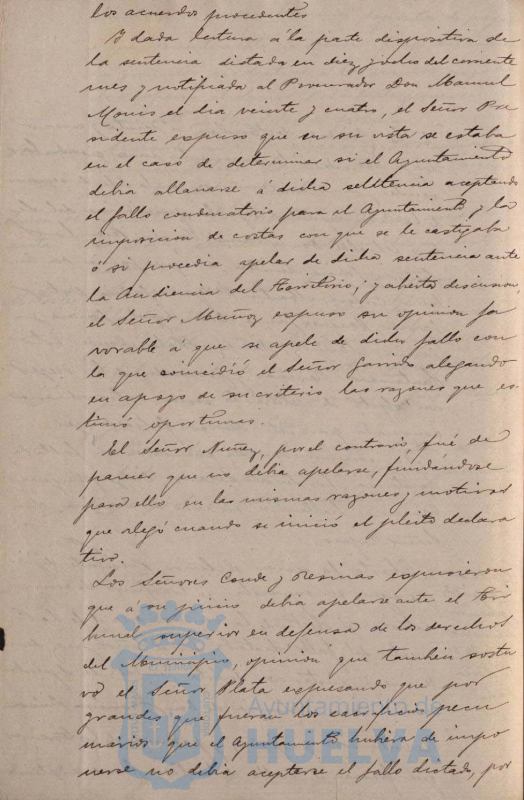 los acuerdos procedentes
Y dada lectura á la parte dispositiva de
la sentencia dictada en diez y ocho del corriente
mes y notificada al Procurador Don Manuel
el dia veinte y cuatro, el Señor Pre
sidente expuso que en su vista se estaba
en el caso de determinar si el Ayuntamiento
debia allanarse á dicha sentencia aceptando
el fallo condenatorio para el Ayuntamiento y la
imposicion de costas con que se le castigaba
ó si procedia apelar de dicha sentencia ante
la Audiencia del Territorio; y abierta discusion,
el Señor Muñoz expuso su opinion fa
vorable á que se apele de dicho fallo con
la que coincidió el Señor Garrido alegando
en apoyo de su criterio las razones que es
timó oportunas.
El Señor Nuñez, por el contrario, fué de
parecer que no debia apelarse, fundándose
para ello en las mismas razones y motivos
que alegó cuando se inició el pleito declara
tivo.
Los Señores Conde y Resinas expusieron
que á su juicio debia apelarse ante el Tri
bunal superior en defensa de los derechos
del Municipio, opinion que tambien sostu
vo el Señor Plata expresando que por
grandes que fueran los sacrificios pecu
niarios que el Ayuntamiento hubiera de impo
nerse no debia aceptarse el fallo dictado, por
Ayuntamiento de
HUELVA